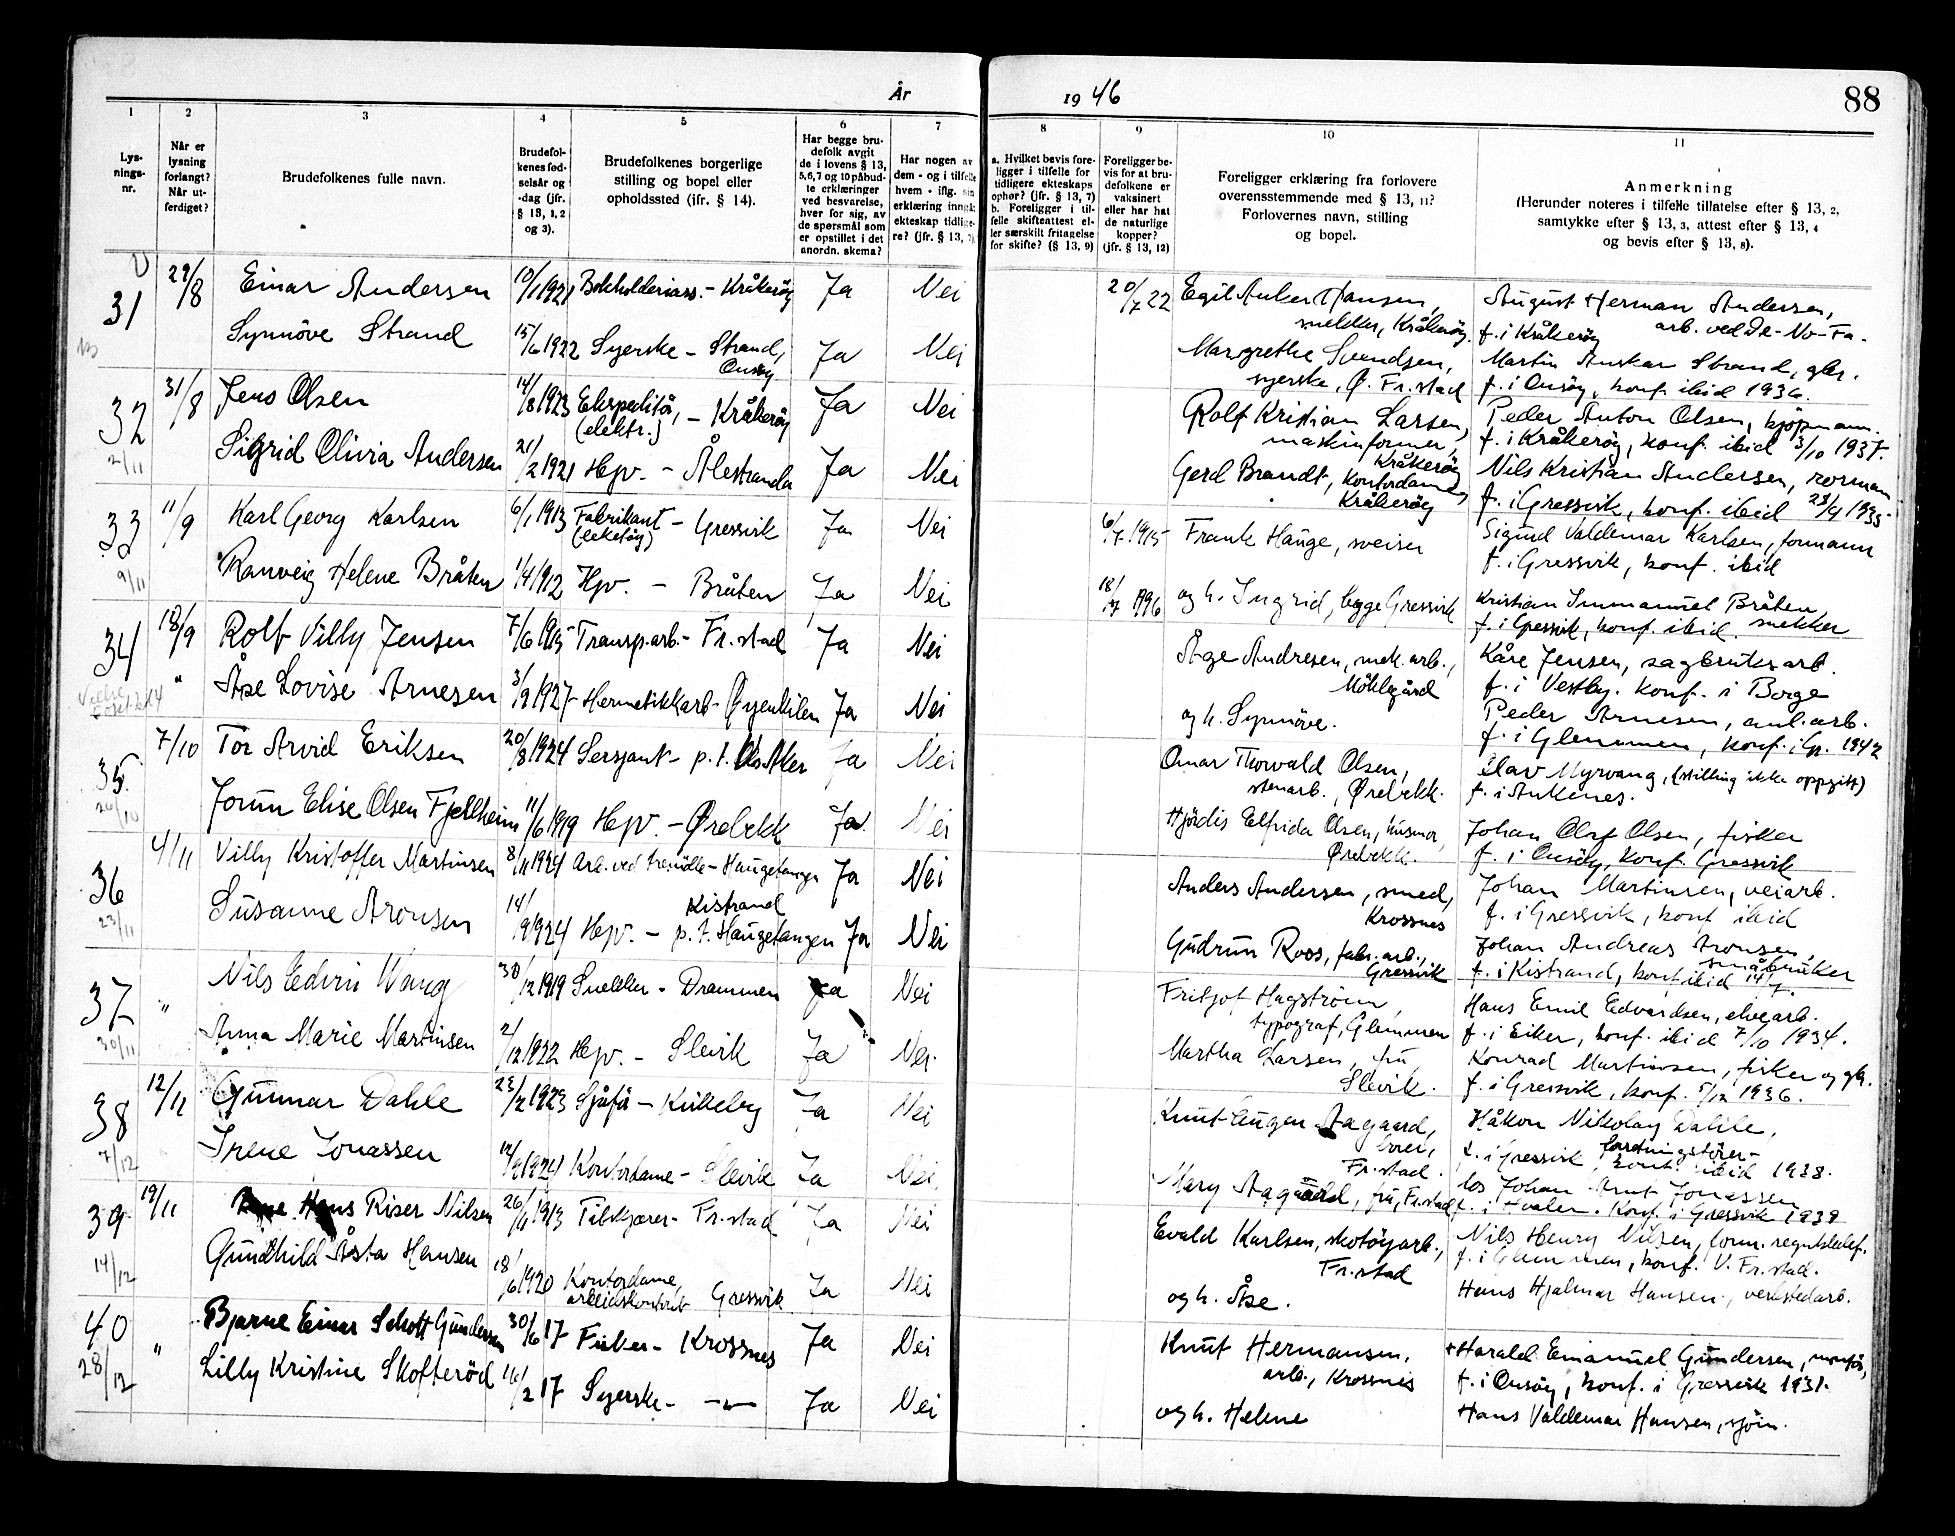 År 1946
88
1 2 3 4 5 6 7 8 9 10 11
Lysningsnr.
Når er lysning forlangt? Når utferdiget?
Brudefolkenes fulle navn.
Brudefolkenes fødselsår og -dag (jfr. § 13, 1, 2 og 3).
Brudefolkenes borgerlige stilling og bopel eller opholdssted (ifr. § 14).
Har begge brudefolk avgit de i lovens § 13, 5, 6, 7 og 10 påbudte erklæringer ved besvarelse, hver for sig, av de spørsmål som er opstillet i det anordn. skema?
Har nogen av dem - og i tilfelle hvem - iflg. sin erklæring inngått ekteskap tidligere? (jfr. § 13, 7).
a. Hvilket bevis foreligger i tilfelle for tidligere ekteskaps ophør? (jfr. § 13, 7)
b. Foreligger i tilfelle skifteattest eller særskilt fritagelse for skifte? (§ 13, 9)
Foreligger bevis for at brudefolkene er vaksinert eller har hat de naturlige kopper? (jfr. § 13, 12)
Foreligger erklæring fra forlovere overensstemmende med § 13, 11? Forlovernes navn, stilling og bopel.
Anmerkning
(Herunder noteres i tilfelle tillatelse efter § 13, 2, samtykke efter § 13, 3, attest efter § 13, 4 og bevis efter § 13, 8).
31 29/8 Einar Andersen 10/1 1921 Bokholderiass. - Kråkerøy Ja Nei 20/7 22 Egil Anker Hansen, snekker, Kråkerøy August Herman Andersen, arb. ved De-No-Fa. f. i Kråkerøy
Synnöve Strand 15/6 1922 Syerske - Strand, Onsøy Ja Nei Margrethe Svendsen, syerske, Ø. Fr.stad Martin Anskar Strand, gbr. f. i Onsøy, konf. ibid 1936.
32 31/8 Jens Olsen 14/8 1923 Ekspeditör, (elektr.) - Kråkerøy Ja Nei Rolf Kristian Larsen, maskinformer, Kråkerøy Peder Anton Olsen, kjöpmann. f. i Kråkerøy, konf. ibid 3/10 1937.
2/11 Sigrid Olivia Andersen 21/2 1921 Hjv. - Ålestranda Ja Nei Gerd Brandt, kontordame, Kråkerøy Nils Kristian Andersen, rorman f. i Gressvik, konf. ibid 28/4 1935
33 11/9 Karl Georg Karlsen 6/1 1913 Fabrikant (leketøy) - Gressvik Ja Nei 6/7 1915 Frank Hauge, sveiser Sigurd Valdemar Karlsen, formann f. i Gressvik, konf. ibid
9/11 Ranveig Helene Bråten 1/4 1912 Hjv. - Bråten Ja Nei 18/7 1996 og h. Ingrid, begge Gressvik Kristian Immanuel Bråten, snekker f. i Gressvik, konf. ibid.
34 18/9 Rolf Villy Jensen 7/6 1915 Transp.arb. - Fr.stad Ja Nei Åge Andresen, mek. arb., Möklegård Kåre Jensen, sagbruksarb. f. i Vestby. Konf. i Borge
" Åse Lovise Arnesen 3/9 1927 Hermetikkarb - Øyenkilen Ja Nei og h. Synnöve. Peder Arnesen, anl.arb. f. i Glemmen, konf. i Gr. 1942
35 7/10 Tor Arvid Eriksen 20/8 1924 Sersjant - p.t. V. Aker Ja Nei Omar Thorvald Olsen, stenarb., Ørebekk. Olav Myrvang, (stilling ikke oppgitt) f. i Ankenes.
26/10 Jorun Elise Olsen Fjellheim 11/6 1919 Hjv. - Ørebekk Ja Nei Hjördis Elfrida Olsen, husmor, Ørebekk. Johan Olaf Olsen, fisker f. i Onsöy, konf. Gressvik
36 4/11 Villy Kristoffer Martinsen 8/11 1924 Arb. ved tremölle - Haugetangen Ja Nei Anders Andersen, smed, Krossnes Johan Martinsen, veiarb. f. i Gressvik, konf ibid
23/11 Susanne Aronsen 14/9 1924 Hjv. - Kistrand p.t. Haugetangen Ja Nei Gudrun Roos, fabr. arb., Gressvik Johan Andreas Aronsen, småbruker f. i Kistrand, konf ibid 14/7.
37 " Nils Edvin Wang 30/12 1919 Snekker - Drammen Ja Nei Fritjof Hagström, typograf, Glemmen Hans Emil Edvardsen, elvearb. f. i Eiker, konf. ibid 7/10 1934.
30/11 Anna Marie Martinsen 2/12 1922 Hjv. - Slevik Ja Nei Martha Larsen, fru, Slevik. Konrad Martinsen, fisker og gbr. f. i Gressvik, konf. 5/12 1936.
38 12/11 Gunnar Dahle 23/2 1923 Sjåfør - Killeby Ja Nei Knut Eugen Aagaard, Fr.stad. Håkon Nikolay Dahle, f. i Gressvik konf. ibid 1938.
7/12 Irene Jonassen 1924 Kontordame - Slevik Ja Nei Mary Aagaard, fru, Fr.stad los Johan Arnt Jonassen f. i Hvaler. Konf. i Gressvik 1939
39 19/11 Hans Riser Nilsen 26/11 1913 Tilskjærer - Fr.stad Ja Nei Evald Karlsen, skotøyarb., Fr.stad Nils Henry Nilsen, f. i Glemmen, konf. V. Fr.stad.
14/12 Gundhild Åsta Hansen 18/6 1920 Kontordame, arbeidskontret Gressvik Ja Nei og h. Åse. Hans Hjalmar Hansen, verkstedarb.
40 " Bjarne Einar Schott Gundersen 30/6 17 Fisker - Krossnes Ja Nei Knut Hermansen, arb., Krossnes + Harald Emanuel Gundersen, f. i Onsöy, konf. i Gressvik 1931.
28/12 Lilly Kristine Skofteröd 16/2 17 Syerske - -"- Ja Nei og h. Helene Hans Valdemar Hansen, sjöm.